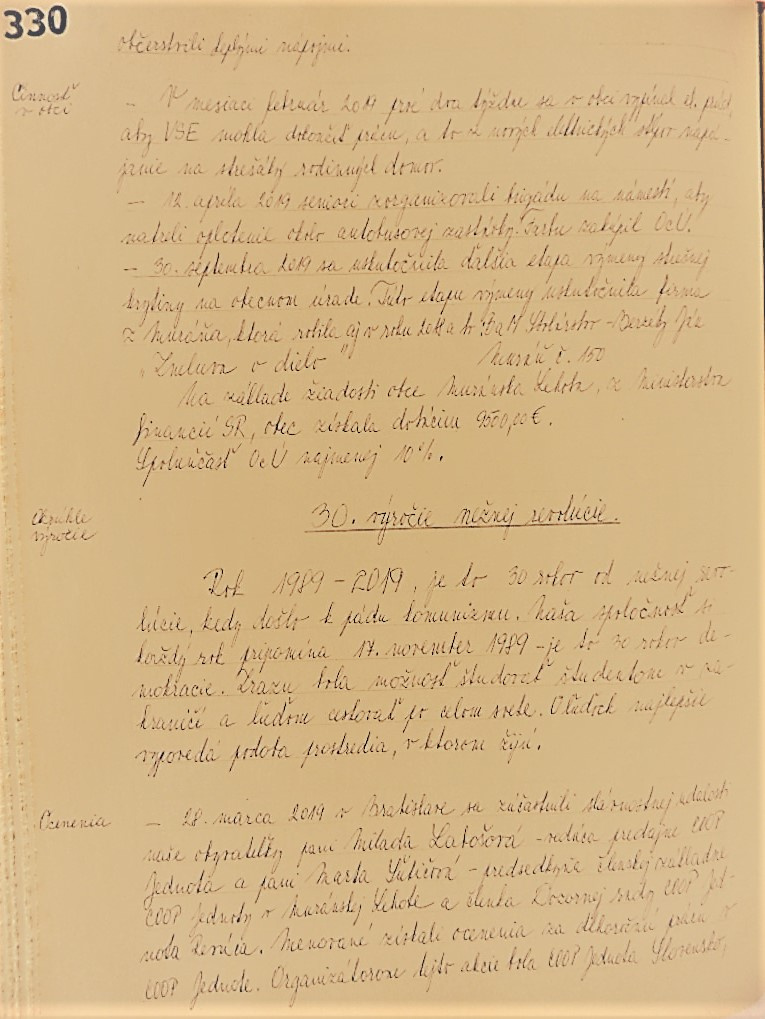 330
občerstvili teplými nápojmi.
Činnosť
v obci
– V mesiaci február 2019 prvé dva týždne sa v obci vypínal el. prúd,
aby VSE mohla dokončiť prácu, a to z nových elektrických stĺpov napá-
janie na strešáky rodinných domov.
– 12. apríla 2019 seniori zorganizovali brigádu na námestí, aby
natreli oplotenie okolo autobusovej zastávky. Farbu zakúpil OcÚ.
– 30. septembra 2019 sa uskutočnila ďalšia etapa výmeny strešnej
krytiny na obecnom úrade. Túto etapu výmeny uskutočnila firma
z Muráňa, ktorá robila aj v roku 2018 a to: B a M Stolárstvo –
„Zmluva o dielo“ Muráň č. 150
Na základe žiadosti obce Muránska Lehota, z Ministerstva
financií SR, obec získala dotáciu 9500,00 €.
Spoluúčasť OcÚ najmenej 10%.
Okrúhle
výročie
30. výročie nežnej revolúcie.
Rok 1989 – 2019, je to 30 rokov od nežnej revo-
lúcie, kedy došlo k pádu komunizmu. Naša spoločnosť si
každý rok pripomína 17. november 1989 – je to 30 rokov de-
mokracie. Zrazu bola možnosť študovať študentom v za-
hraničí a ľuďom cestovať po celom svete. O ľuďoch najlepšie
vypovedá podoba prostredia, v ktorom žijú.
Ocenenia
– 28. marca 2019 v Bratislave sa zúčastnili slávnostnej udalosti
naše obyvateľky pani Milada Labošová – vedúca predajne COOP
Jednota a pani Marta – predsedkyňa členskej základne
COOP Jednoty v Muránskej Lehote a členka Dozornej rady COOP Jed-
nota Revúca. Menované získali ocenenia za dlhoročnú prácu v
COOP Jednote. Organizátorom tejto akcie bola COOP Jednota Slovensko,